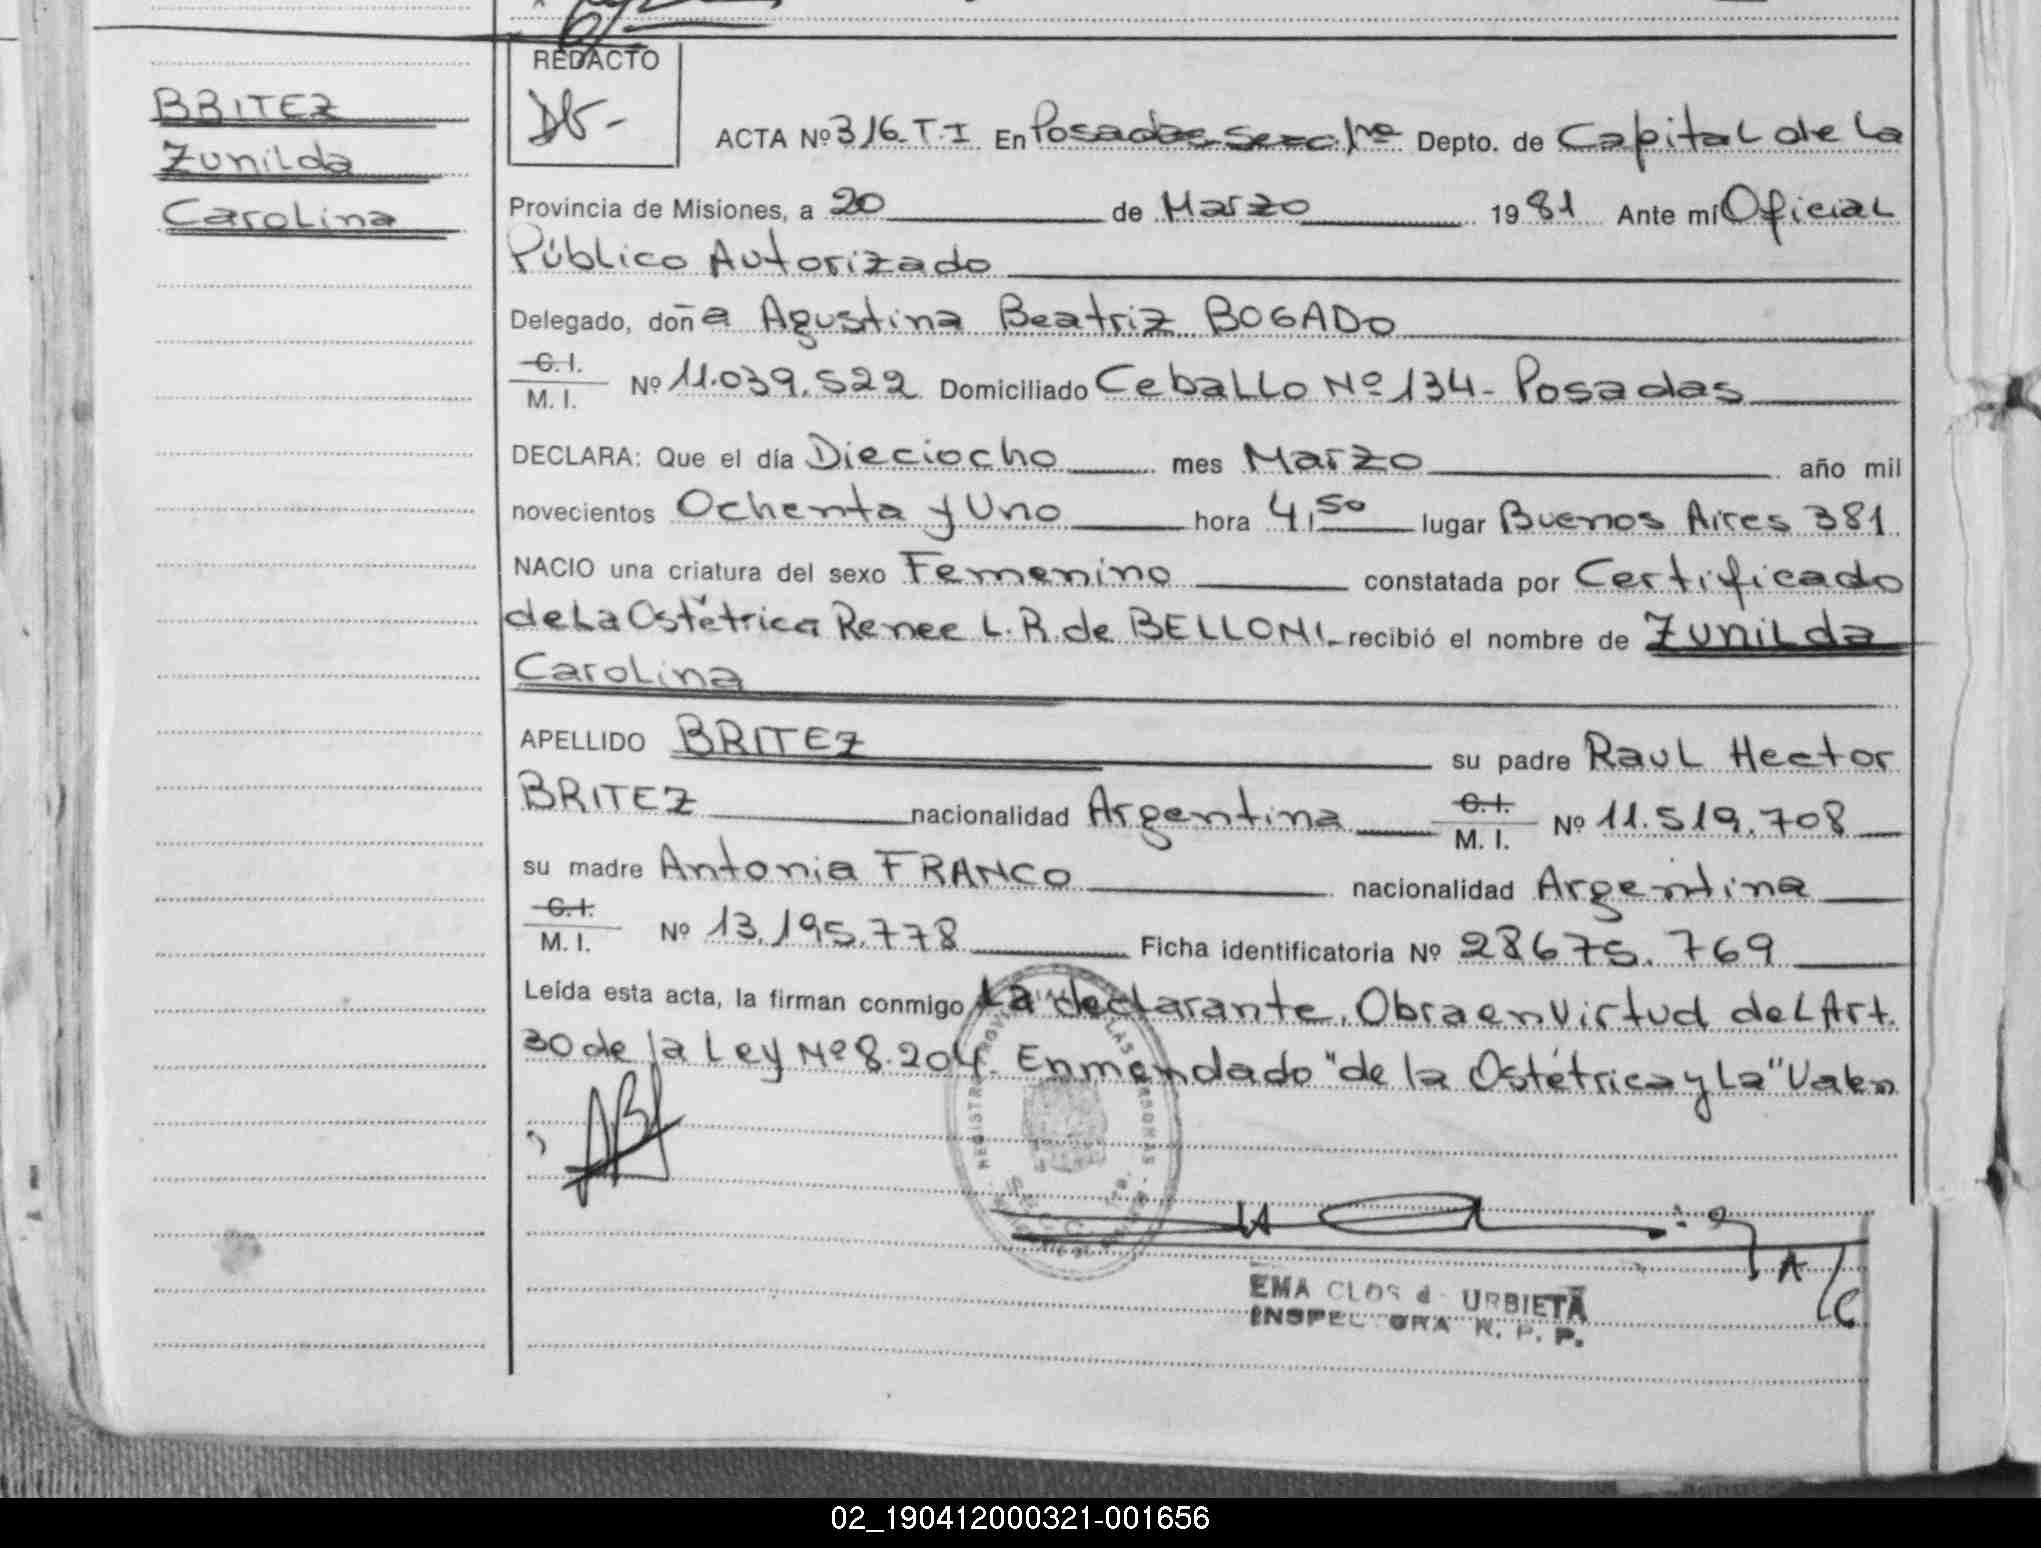 BRITEZ
Zunilda
Carolina
REDACTO
ACTA Nº 316 T.I En Posadas Secc. 1ra Depto. de Capital de la
Provincia de Misiones, a 20 de Marzo 1981 Ante mí Oficial
Público Autorizado
Delegado, doña Agustina Beatriz BOGADO
C. I.
M. I. Nº 11.039.522 Domiciliado Ceballo Nº 134 - Posadas
DECLARA: Que el día Dieciocho mes Marzo año mil
novecientos Ochenta y Uno hora 4,50 lugar Buenos Aires 381
NACIO una criatura del sexo Femenino constatada por Certificado
de La Ostétrica Renee L. R. de BELLONI recibió el nombre de Zunilda
Carolina
APELLIDO BRITEZ su padre Raul Hector
BRITEZ nacionalidad Argentina C. I. M. I. Nº 11.519.708
su madre Antonia FRANCO nacionalidad Argentina
C. I.
M. I. Nº 13.195.778 Ficha identificatoria Nº 28675.769
Leída esta acta, la firman conmigo La declarante. Obra en Virtud del Art.
30 de la Ley Nº 8.204. Enmendado "de la Ostétrica y La" Valen
EMA CLOS d URBIETA
INSPECTORA R. P. P.
A/C
02_190412000321-001656